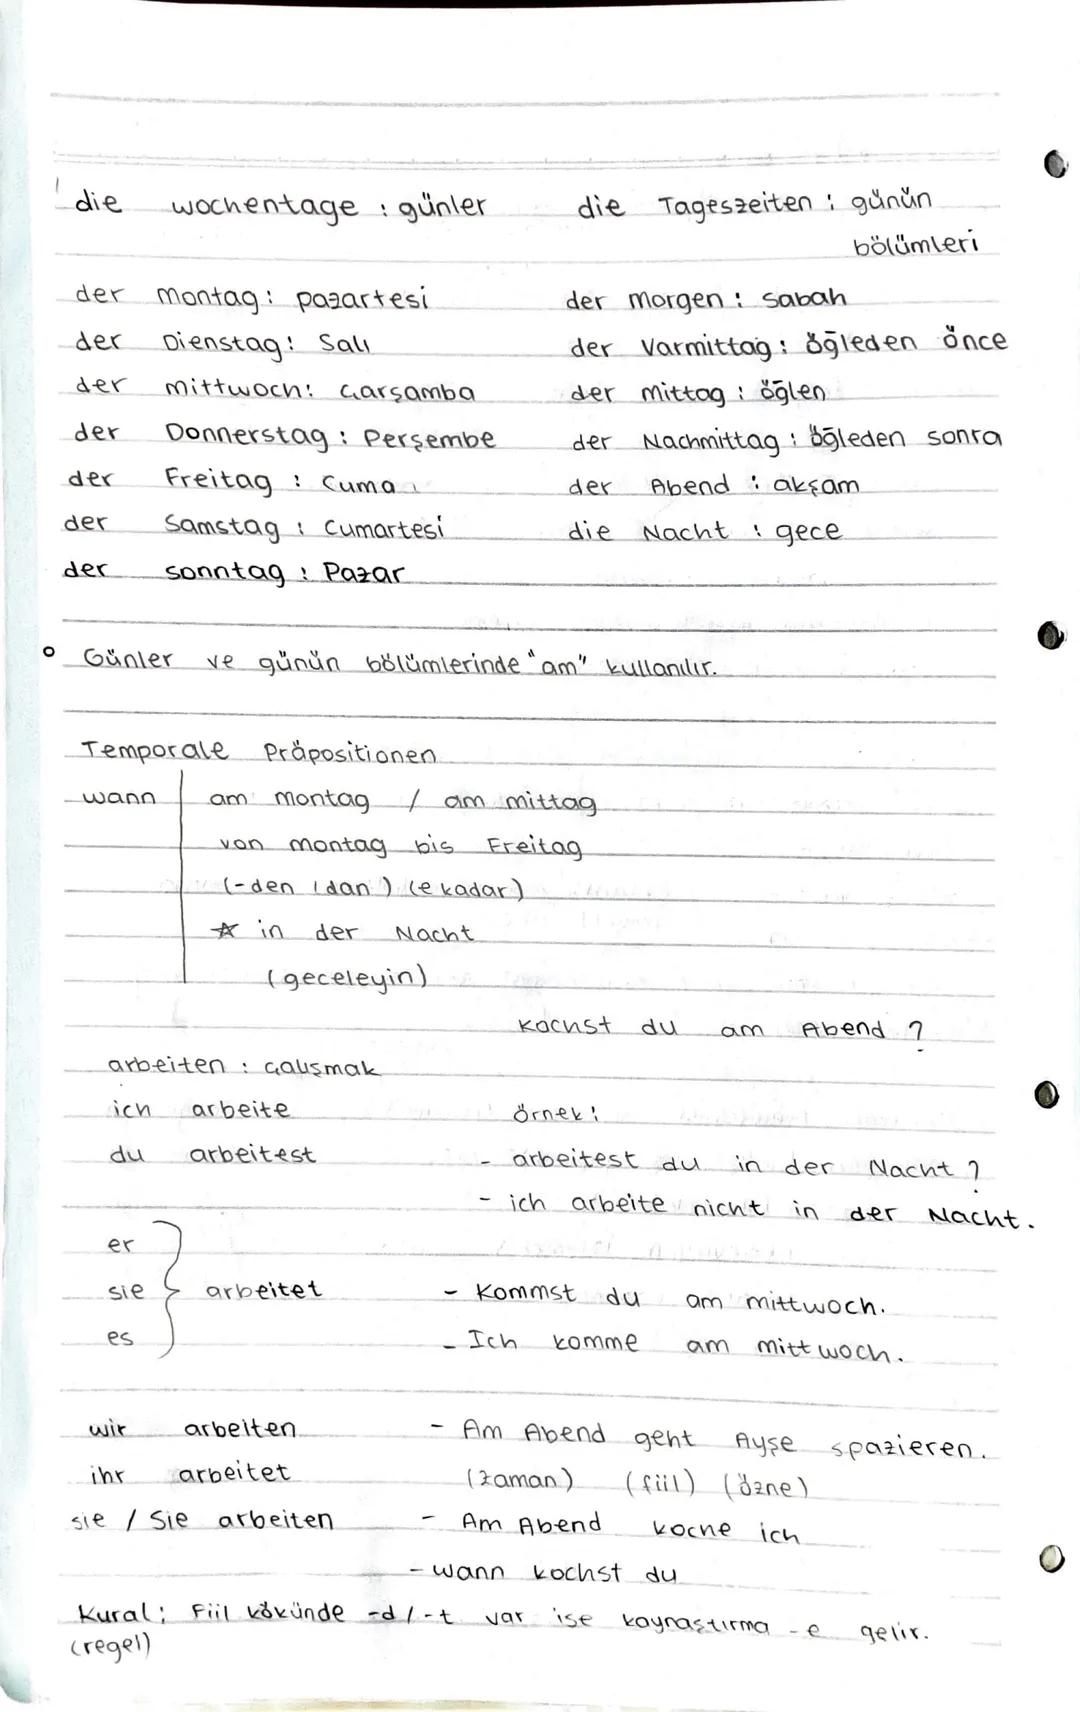 die wochentage : günler
die Tageszeiten : günün
bölümleri
der montag : pazartesi
der Dienstag : Salı
der mittwoch : çarşamba
der Donnerstag : Perşembe
der Freitag : Cuma
der Samstag : Cumartesi
der sonntag : Pazar
der morgen : sabah
der Varmittag : öğleden önce
der mittag : öğlen
der Nachmittag : öğleden sonra
der Abend : akşam
die Nacht : gece
Günler ve günün bölümlerinde "am" kullanılır.
Temporale Präpositionen
wann am montag / am mittag
von montag bis Freitag
(-den / dan) (e kadar)
☆ in der Nacht
(geceleyin)
kochst du am Abend ?
arbeiten : çalışmak
ich arbeite
du arbeitest
er
sie } arbeitet
es
wir arbeiten
ihr arbeitet
sie / Sie arbeiten
örnek :
- arbeitest du in der Nacht ?
- ich arbeite nicht in der Nacht.
- Kommst du am mittwoch.
- Ich komme am mittwoch.
- Am Abend geht Ayşe spazieren.
(zaman) (fiil) (özne)
- Am Abend koche ich
- wann kochst du
Kural : Fiil kökünde -d / -t var ise kaynaştırma -e gelir.
(regel)